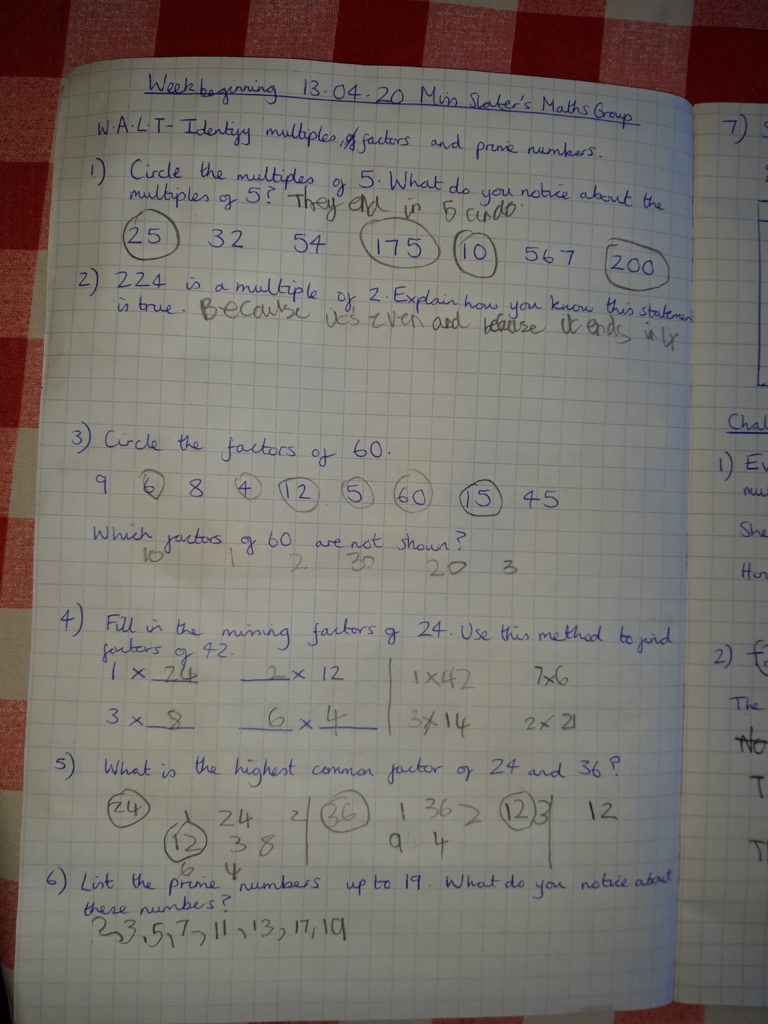 Week beginning 13.04.20 Miss Slater's Maths Group
W.A.L.T- Identify multiples, factors and prime numbers.
1) Circle the multiples of 5. What do you notice about the
multiples of 5? They end in 5 and 0.
25 32 54 175 10 567 200
2) 224 is a multiple of 2. Explain how you know this statement
is true. Because it's Even and because it ends in 4
3) Circle the factors of 60.
9 6 8 4 12 5 60 15 45
Which factors of 60 are not shown?
10 1 2 30 20 3
4) Fill in the missing factors of 24. Use this method to find
factors of 42.
1 × 24 2 × 12 1×42 7×6
3 × 8 6 × 4 3×14 2×21
5) What is the highest common factor of 24 and 36?
24 1 24 2 36 1 36 2 12 3 12
12 3 8 9 4
6 4
6) List the prime numbers up to 19. What do you notice about
these numbers?
2,3,5,7,11,13,17,19
7)
Chal
1) Ev
mu
She
How
2)
The
No
T
Th